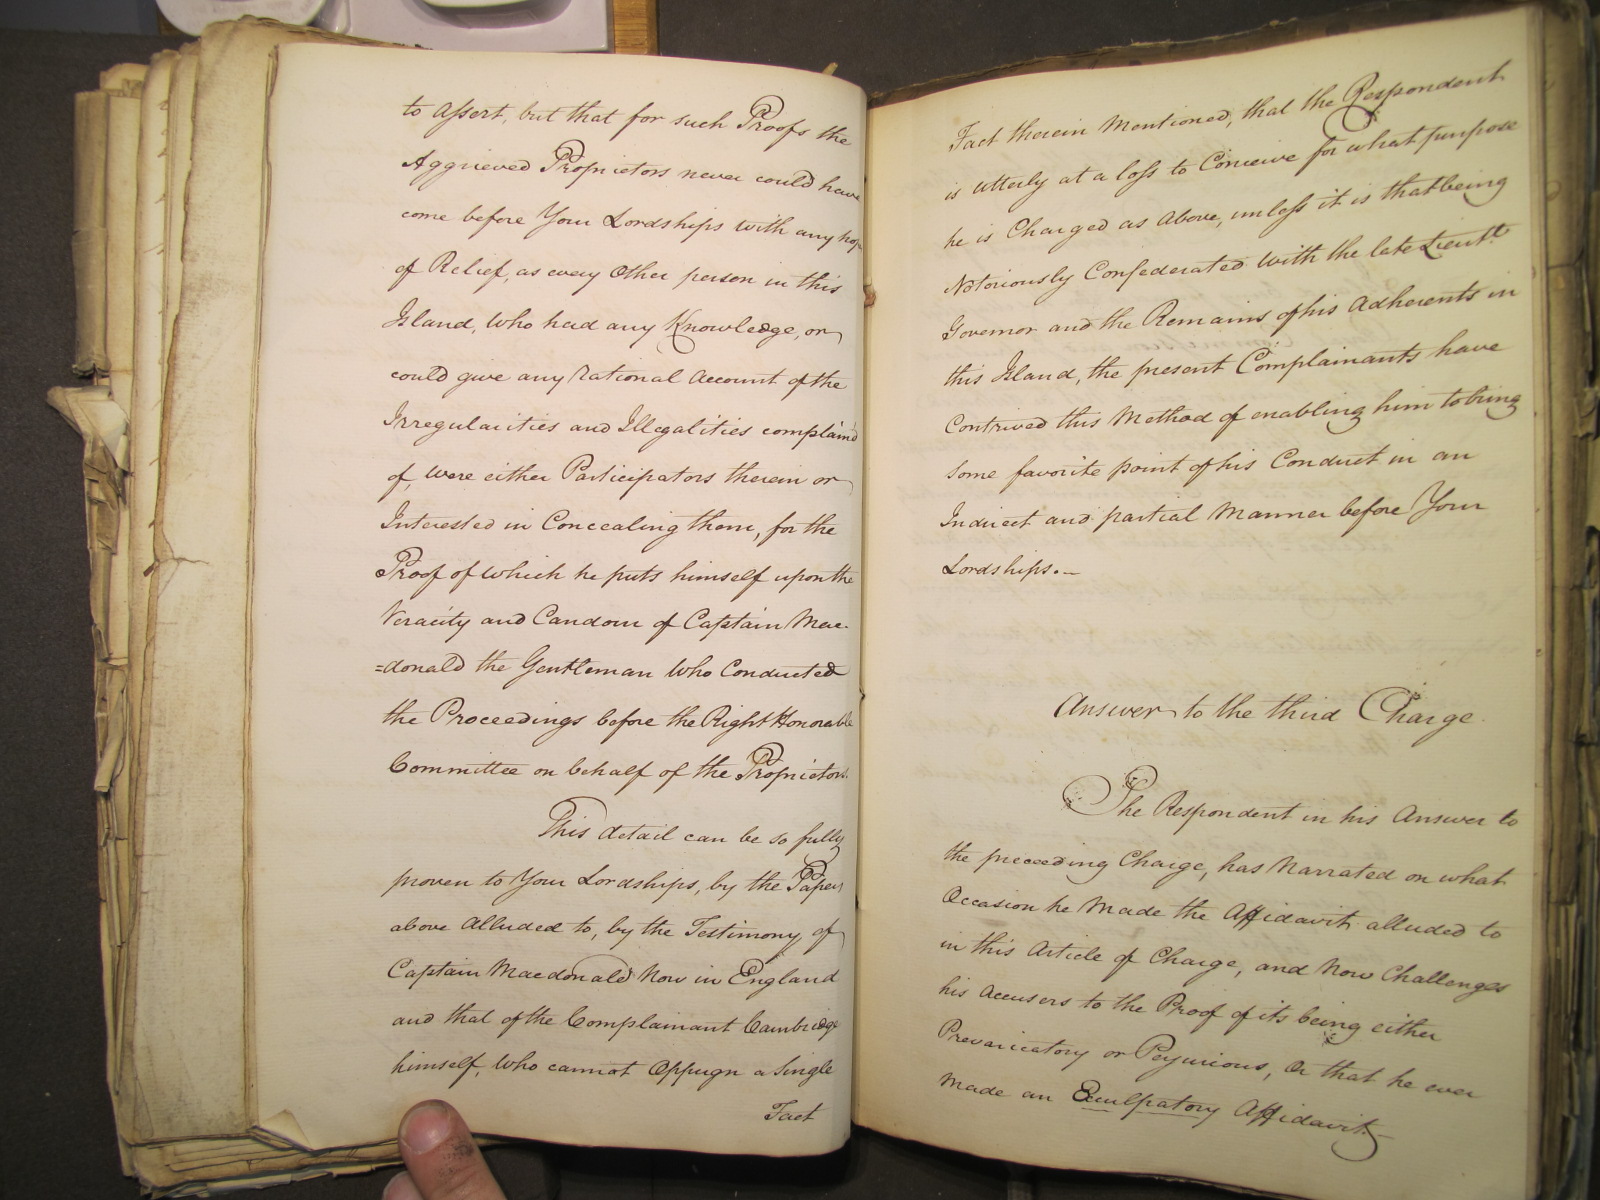 to assert, but that for such Proofs the
Aggrieved Proprietors never could have
come before Your Lordships with any hop
of Relief, as every other person in this
Island, who had any Knowledge, or
could give any rational Account of the
Irregularities and Illegalities complain'd
of, were either Participators therein or
Interested in Concealing them, for the
Proof of which he puts himself upon the
Veracity and Candour of Captain Mac-
=donald the Gentleman who Conducted
the Proceedings before the Right Honorable
Committee on behalf of the Proprietors.
This detail can be so fully
proven to Your Lordships, by the Papers
above Alluded to, by the Testimony of
Captain Macdonald Now in England
and that of the Complainant Cambridge
himself, who cannot Oppugn a Single
Fact
Fact therein Mentioned, that the Respondent
is utterly at a loss to Conceive for what purpose
he is Charged as Above, unless it is that being
Notoriously Confederated with the late Lieut.t
Governor and the Remains of his Adherents in
this Island, the present Complainants have
Contrived this Method of enabling him to bring
some favorite point of his Conduct in an
Indirect and partial Manner before Your
Lordships.—
Answer to the third Charge
The Respondent in his Answer to
the preceeding Charge, has Narrated on what
Occasion he Made the Affidavit alluded to
in this Article of Charge, and Now Challenges
his Accusers to the Proof of its being either
Prevaricatory or Perjurious, Or that he ever
Made an Exculpatory Affidavit.